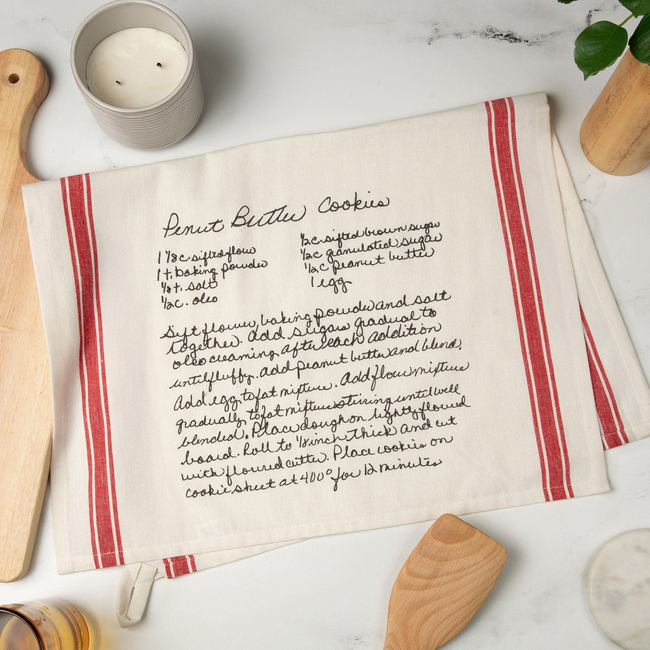 Penut Butter Cookies
1 1/8 c. sifted flow
1 t. baking powder
1/8 t. salt
1/2 c. oleo
1/2 c. sifted brown sugar
1/2 c granulated sugar
1/2 c peanut butter
1 egg
Sift flower, baking powder and salt
together. Add sugars gradual to
oleo creaming after each addition
until fluffy. add peanut butter and blend.
Add egg to fat mixture. Add flow mixture
gradually to fat mixture stirring until well
blended. Place dough on lightly flowed
board. Roll to 1/8 inch thick and cut
with floured cutter. Place cookies on
cookie sheet at 400° for 12 minutes